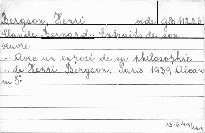 Bergson, Henri vide: Gb 11226
Claude Bernard. Extraits de son
oeuvre.
- Avec un exposé de sa philosophie
- de Henri Bergson. Paris 1939, Alcan
in 8°